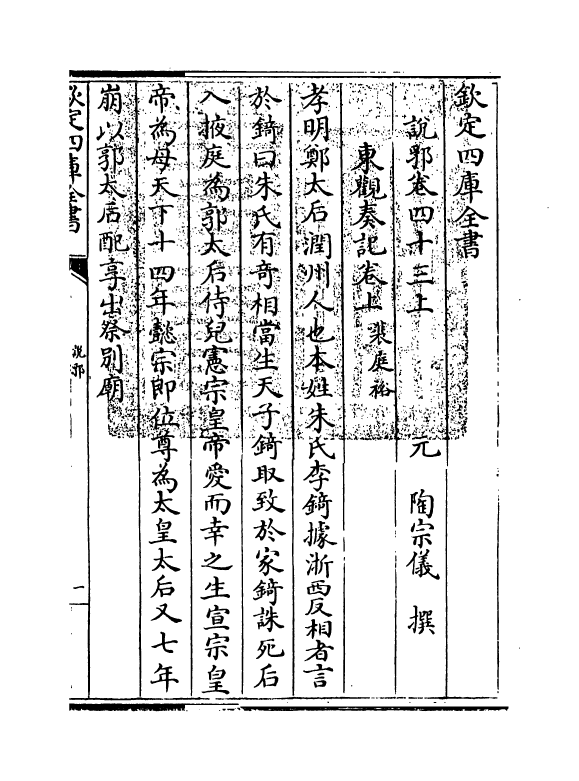 欽定四庫全書
說郛卷四十三上
元 陶宗儀 撰
東觀奏記卷上 裴庭裕
孝明鄭太后潤州人也本姓朱氏李錡據浙西反相者言
於錡曰朱氏有竒相當生天子錡取致於家錡誅死后
入掖庭為郭太后侍兒憲宗皇帝愛而幸之生宣宗皇
帝為母天下十四年懿宗即位尊為太皇太后又七年
崩以郭太后配享出祭別廟
欽定四庫全書
說郛
一